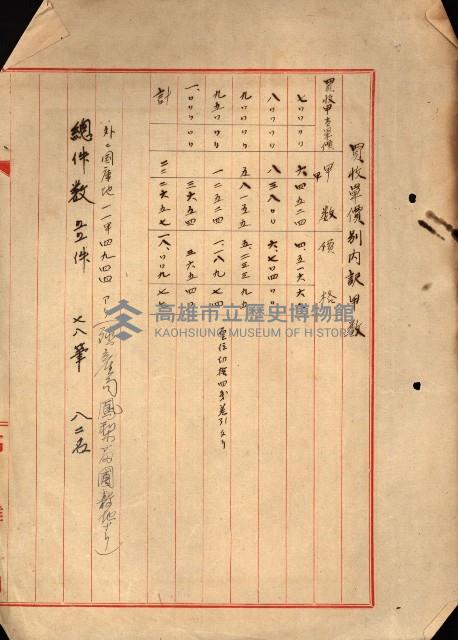 買收單價別內訳甲数
買收甲當單價 甲数 價格
七〇〇〇〇 六甲四五二四 四、五一六六八
八〇〇〇〇 八三八〇〇 六、七〇四〇〇
九〇〇〇〇 五八一五五 五、二三三九五
九五〇〇〇 一二五二四 一、一八九七四
切捨四 差引アリ
一、〇〇〇〇〇 三六五四 三六五四〇
計 二二二六五七 一八、〇〇九七七
外ニ國庫地 一一甲四九四四 アリ（鳳梨 圃敷地ナリ）
總件数 五五件 七八筆 八二名
高雄市立歷史博物館
KAOHSIUNG MUSEUM OF HISTORY